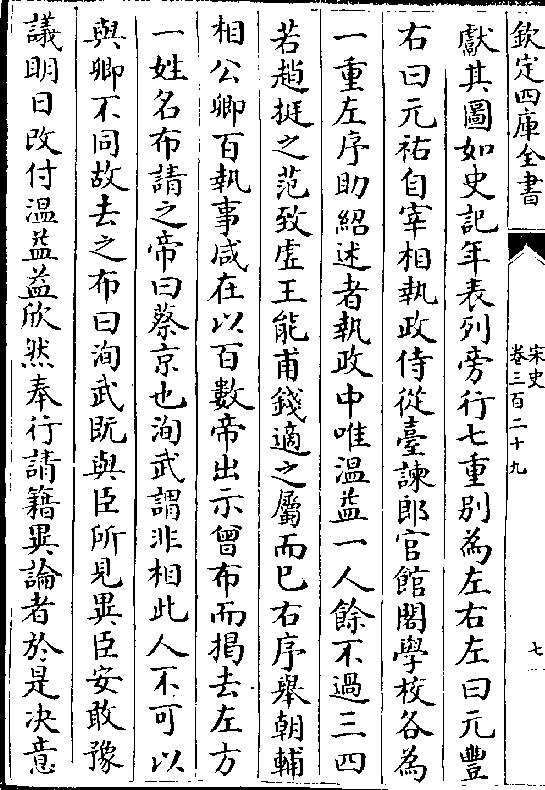 欽定四庫全書
宋史
卷三百二十九
七
獻其圖如史記年表列旁行七重别為左右左曰元豐
右曰元祐自宰相執政侍從臺諫郎官館閣學校各為
一重左序助紹述者執政中唯温益一人餘不過三四
若趙挺之范致虚王能甫錢遹之屬而已右序舉朝輔
相公卿百執事咸在以百數帝出示曾布而揭去左方
一姓名布請之帝曰蔡京也洵武謂非相此人不可以
與卿不同故去之布曰洵武既與臣所見異臣安敢豫
議明日改付温益益欣然奉行請籍異論者於是決意